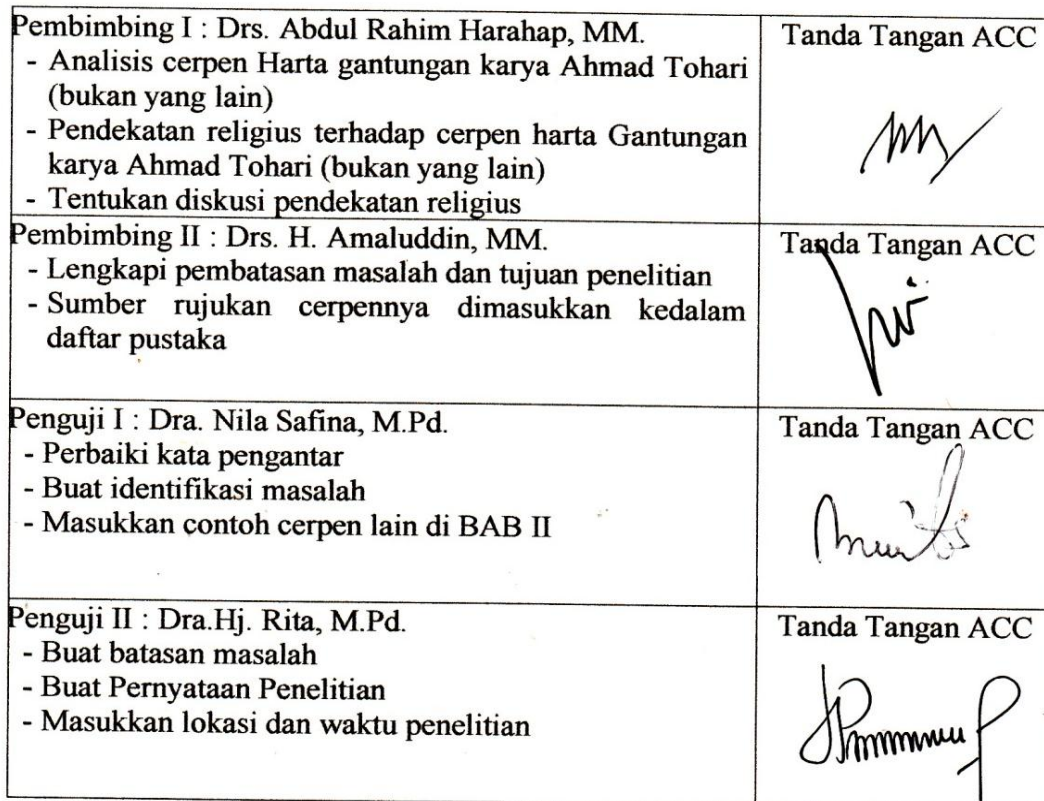 Pembimbing I : Drs. Abdul Rahim Harahap, MM.
- Analisis cerpen Harta gantungan karya Ahmad Tohari
(bukan yang lain)
- Pendekatan religius terhadap cerpen harta Gantungan
karya Ahmad Tohari (bukan yang lain)
- Tentukan diskusi pendekatan religius
Tanda Tangan ACC
Pembimbing II : Drs. H. Amaluddin, MM.
- Lengkapi pembatasan masalah dan tujuan penelitian
- Sumber rujukan cerpennya dimasukkan kedalam
daftar pustaka
Tanda Tangan ACC
Penguji I : Dra. Nila Safina, M.Pd.
- Perbaiki kata pengantar
- Buat identifikasi masalah
- Masukkan contoh cerpen lain di BAB II
Tanda Tangan ACC
Penguji II : Dra.Hj. Rita, M.Pd.
- Buat batasan masalah
- Buat Pernyataan Penelitian
- Masukkan lokasi dan waktu penelitian
Tanda Tangan ACC